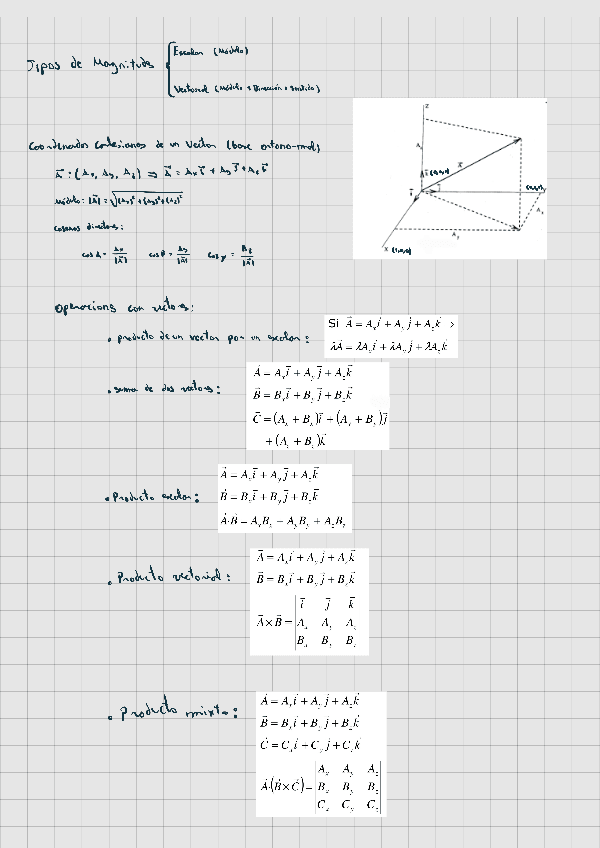 Tipos de Magnitudes { Escalar (Módulo)
Vectorial (Módulo + Dirección + Sentido)
Coordenadas Cartesianas de un Vector (base ortono-rmal)
A⃗ : (Ax, Ay, Az) ⇒ A⃗ = Ax i⃗ + Ay j⃗ + Az k⃗
módulo: |A⃗| = √((Ax)² + (Ay)² + (Az)²)
cosenos directores:
cos α = Ax/|A⃗| cos β = Ay/|A⃗| cos γ = Az/|A⃗|
Z
X (1,0,0)
Operaciones con vectores:
• producto de un vector por un escalar:
Si A⃗ = Ax i⃗ + Ay j⃗ + Az k⃗ >
λA⃗ = λAx i⃗ + λAy j⃗ + λAz k⃗
• suma de dos vectores:
A⃗ = Ax i⃗ + Ay j⃗ + Az k⃗
B⃗ = Bx i⃗ + By j⃗ + Bz k⃗
C⃗ = (Ax + Bx) i⃗ + (Ay + By) j⃗
+ (Az + Bz) k⃗
• Producto escalar:
A⃗ = Ax i⃗ + Ay j⃗ + Az k⃗
B⃗ = Bx i⃗ + By j⃗ + Bz k⃗
A⃗·B⃗ = AxBx + AyBy + AzBz
• Producto vectorial:
A⃗ = Ax i⃗ + Ay j⃗ + Az k⃗
B⃗ = Bx i⃗ + By j⃗ + Bz k⃗
A⃗ × B⃗ = | i⃗ j⃗ k⃗ |
| Ax Ay Az |
| Bx By Bz |
• Producto mixto:
A⃗ = Ax i⃗ + Ay j⃗ + Az k⃗
B⃗ = Bx i⃗ + By j⃗ + Bz k⃗
C⃗ = Cx i⃗ + Cy j⃗ + Cz k⃗
A⃗·(B⃗ × C⃗) = | Ax Ay Az |
| Bx By Bz |
| Cx Cy Cz |